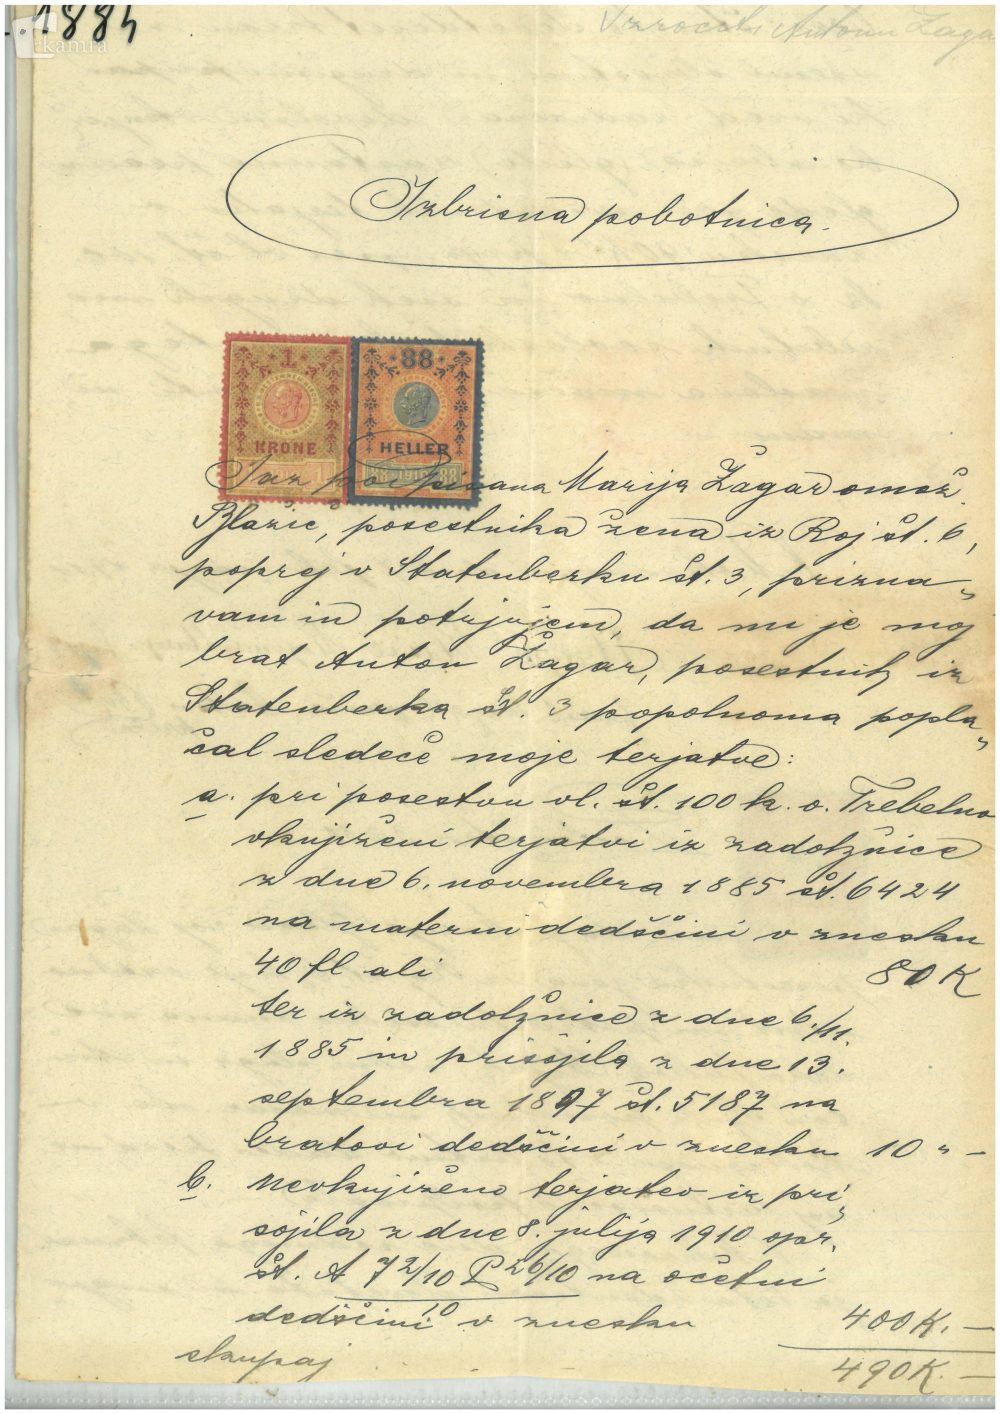 1884
kamra
Vzročil Anton Žaga
Izbrisna pobotnica.
1 88
KRONE HELLER
Jaz podpisana Marija Žagar omož.
Blazic, posestnika žena iz Roj št. 6,
poprej v Statenberku št. 3, prizna„
vam in potrjujem, da mi je moj
brat Anton Žagar, posestnik iz
Statenberka št. 3 popolnoma popla„
čal sledeče moje terjatve:
a. pri posestvu vl. št. 100 k. o. Trebelno
vknjiženi terjatvi iz zadolžnice
z dne 6. novembra 1885 št. 6424
na materni dedščini v znesku
40 fl ali 80 K
ter iz zadolžnice z dne 6./11.
1885 in prisojila z dne 13.
septembra 1897 št. 5187 na
bratovi dedščini v znesku 10 „ —
b. nevknjiženo terjatev iz pri„
sojila z dne 8. julija 1910 opr.
št. A 72/10 P 26/10 na očetni
10
dedščini v znesku 400 K. —
skupaj 490 K. —